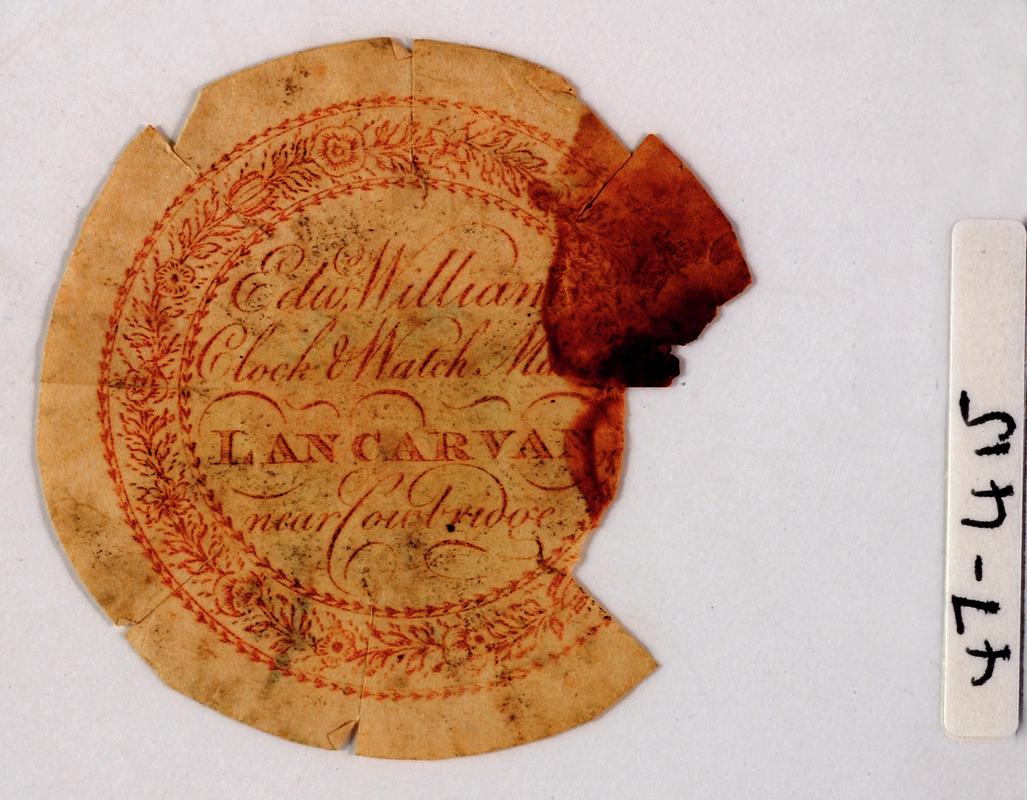 Edw. William
Clock & Watch Ma
LANCARVAN
near Cowbridge
47-415